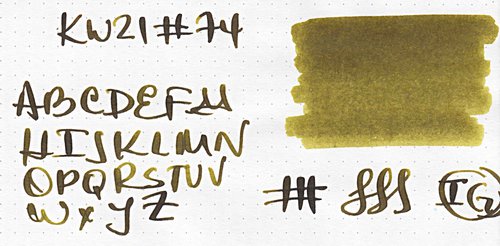 KWZI #74
ABCDEFG
HIJKLMN
OPQRSTUV
WXYZ
IG